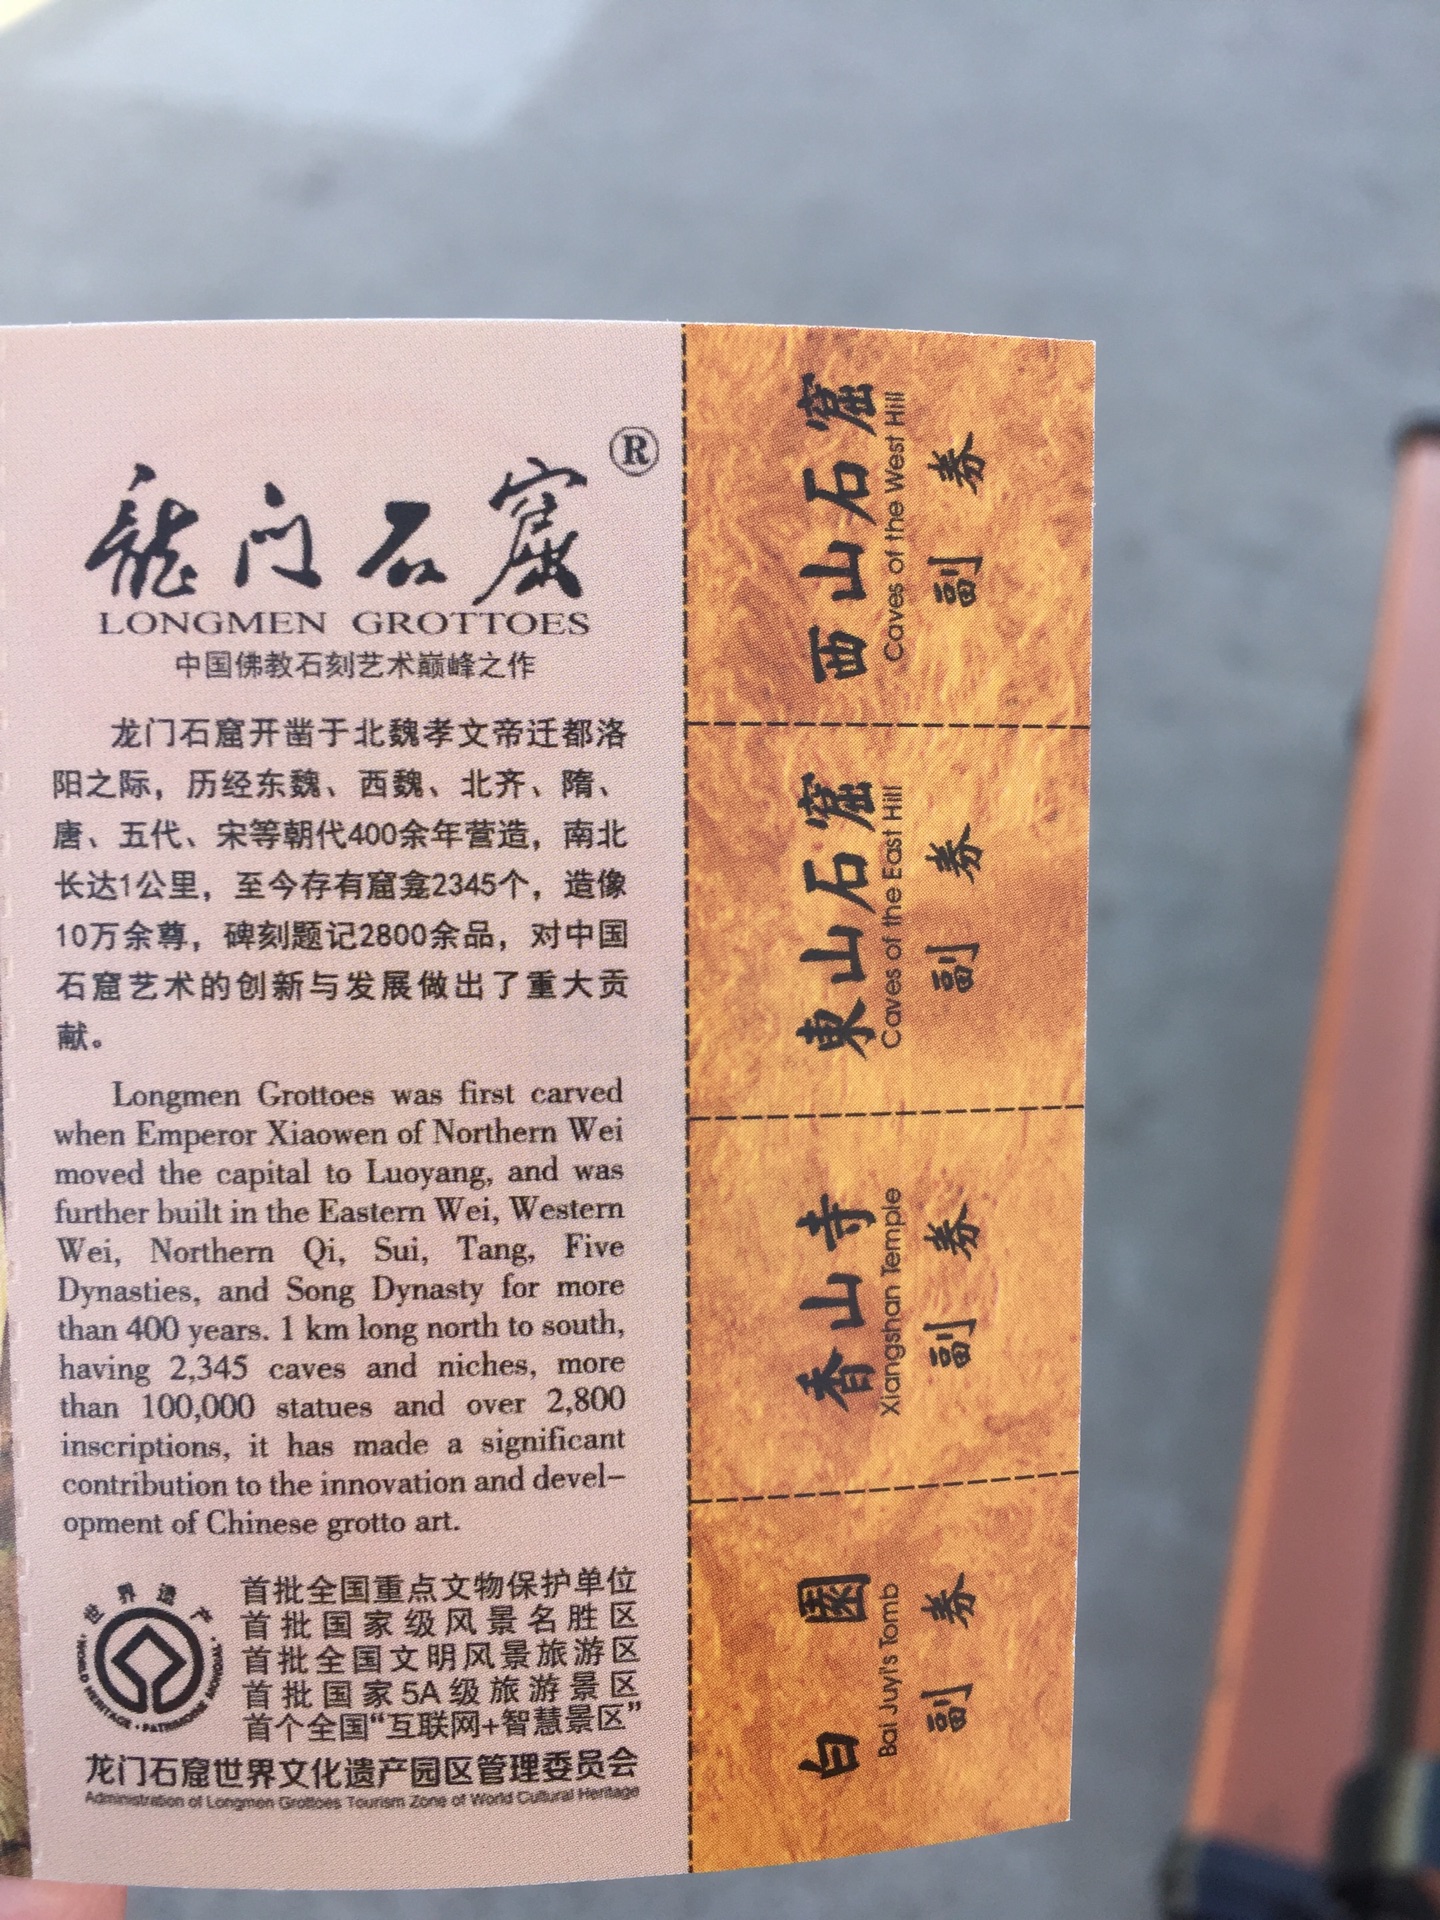 龍门石窟®
LONGMEN GROTTOES
中国佛教石刻艺术巅峰之作
龙门石窟开凿于北魏孝文帝迁都洛
阳之际，历经东魏、西魏、北齐、隋、
唐、五代、宋等朝代400余年营造，南北
长达1公里，至今存有窟龛2345个，造像
10万余尊，碑刻题记2800余品，对中国
石窟艺术的创新与发展做出了重大贡
献。
Longmen Grottoes was first carved
when Emperor Xiaowen of Northern Wei
moved the capital to Luoyang, and was
further built in the Eastern Wei, Western
Wei, Northern Qi, Sui, Tang, Five
Dynasties, and Song Dynasty for more
than 400 years. 1 km long north to south,
having 2,345 caves and niches, more
than 100,000 statues and over 2,800
inscriptions, it has made a significant
contribution to the innovation and devel–
opment of Chinese grotto art.
世界遗产
·WORLD HERITAGE·PATRIMOINE MONDIAL·
首批全国重点文物保护单位
首批国家级风景名胜区
首批全国文明风景旅游区
首批国家5A级旅游景区
首个全国“互联网+智慧景区”
龙门石窟世界文化遗产园区管理委员会
Administration of Longmen Grottoes Tourism Zone of World Cultural Heritage
西山石窟
Caves of the West Hill
副券
東山石窟
Caves of the East Hill
副券
香山寺
Xiangshan Temple
副券
白園
Bai Juyi's Tomb
副券